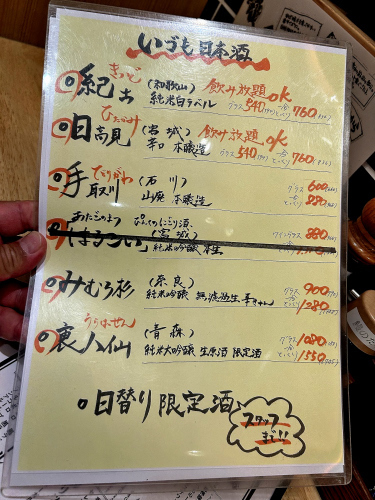 いづも日本酒
きっど
紀土 (和歌山) 飲み放題ok
純米白ラベル グラス540 一合とっくり760
ひたかみ
日高見 (宮城) 飲み放題ok
本醸造 グラス540 一合とっくり760
てどりがわ
手取川 (石川) グラス600
山廃 本醸造 一合とっくり880
あたごのまつ ぴんくのにごり酒
はるこい (宮城) ワイングラス880
純米吟醸
みむろ杉 (奈良) グラス900
純米吟醸 一合とっくり1280
裏八仙 (青森) グラス1080
純米大吟醸 生原酒 限定酒 一合とっくり1550
日替り限定酒
スタッフ
まで!!